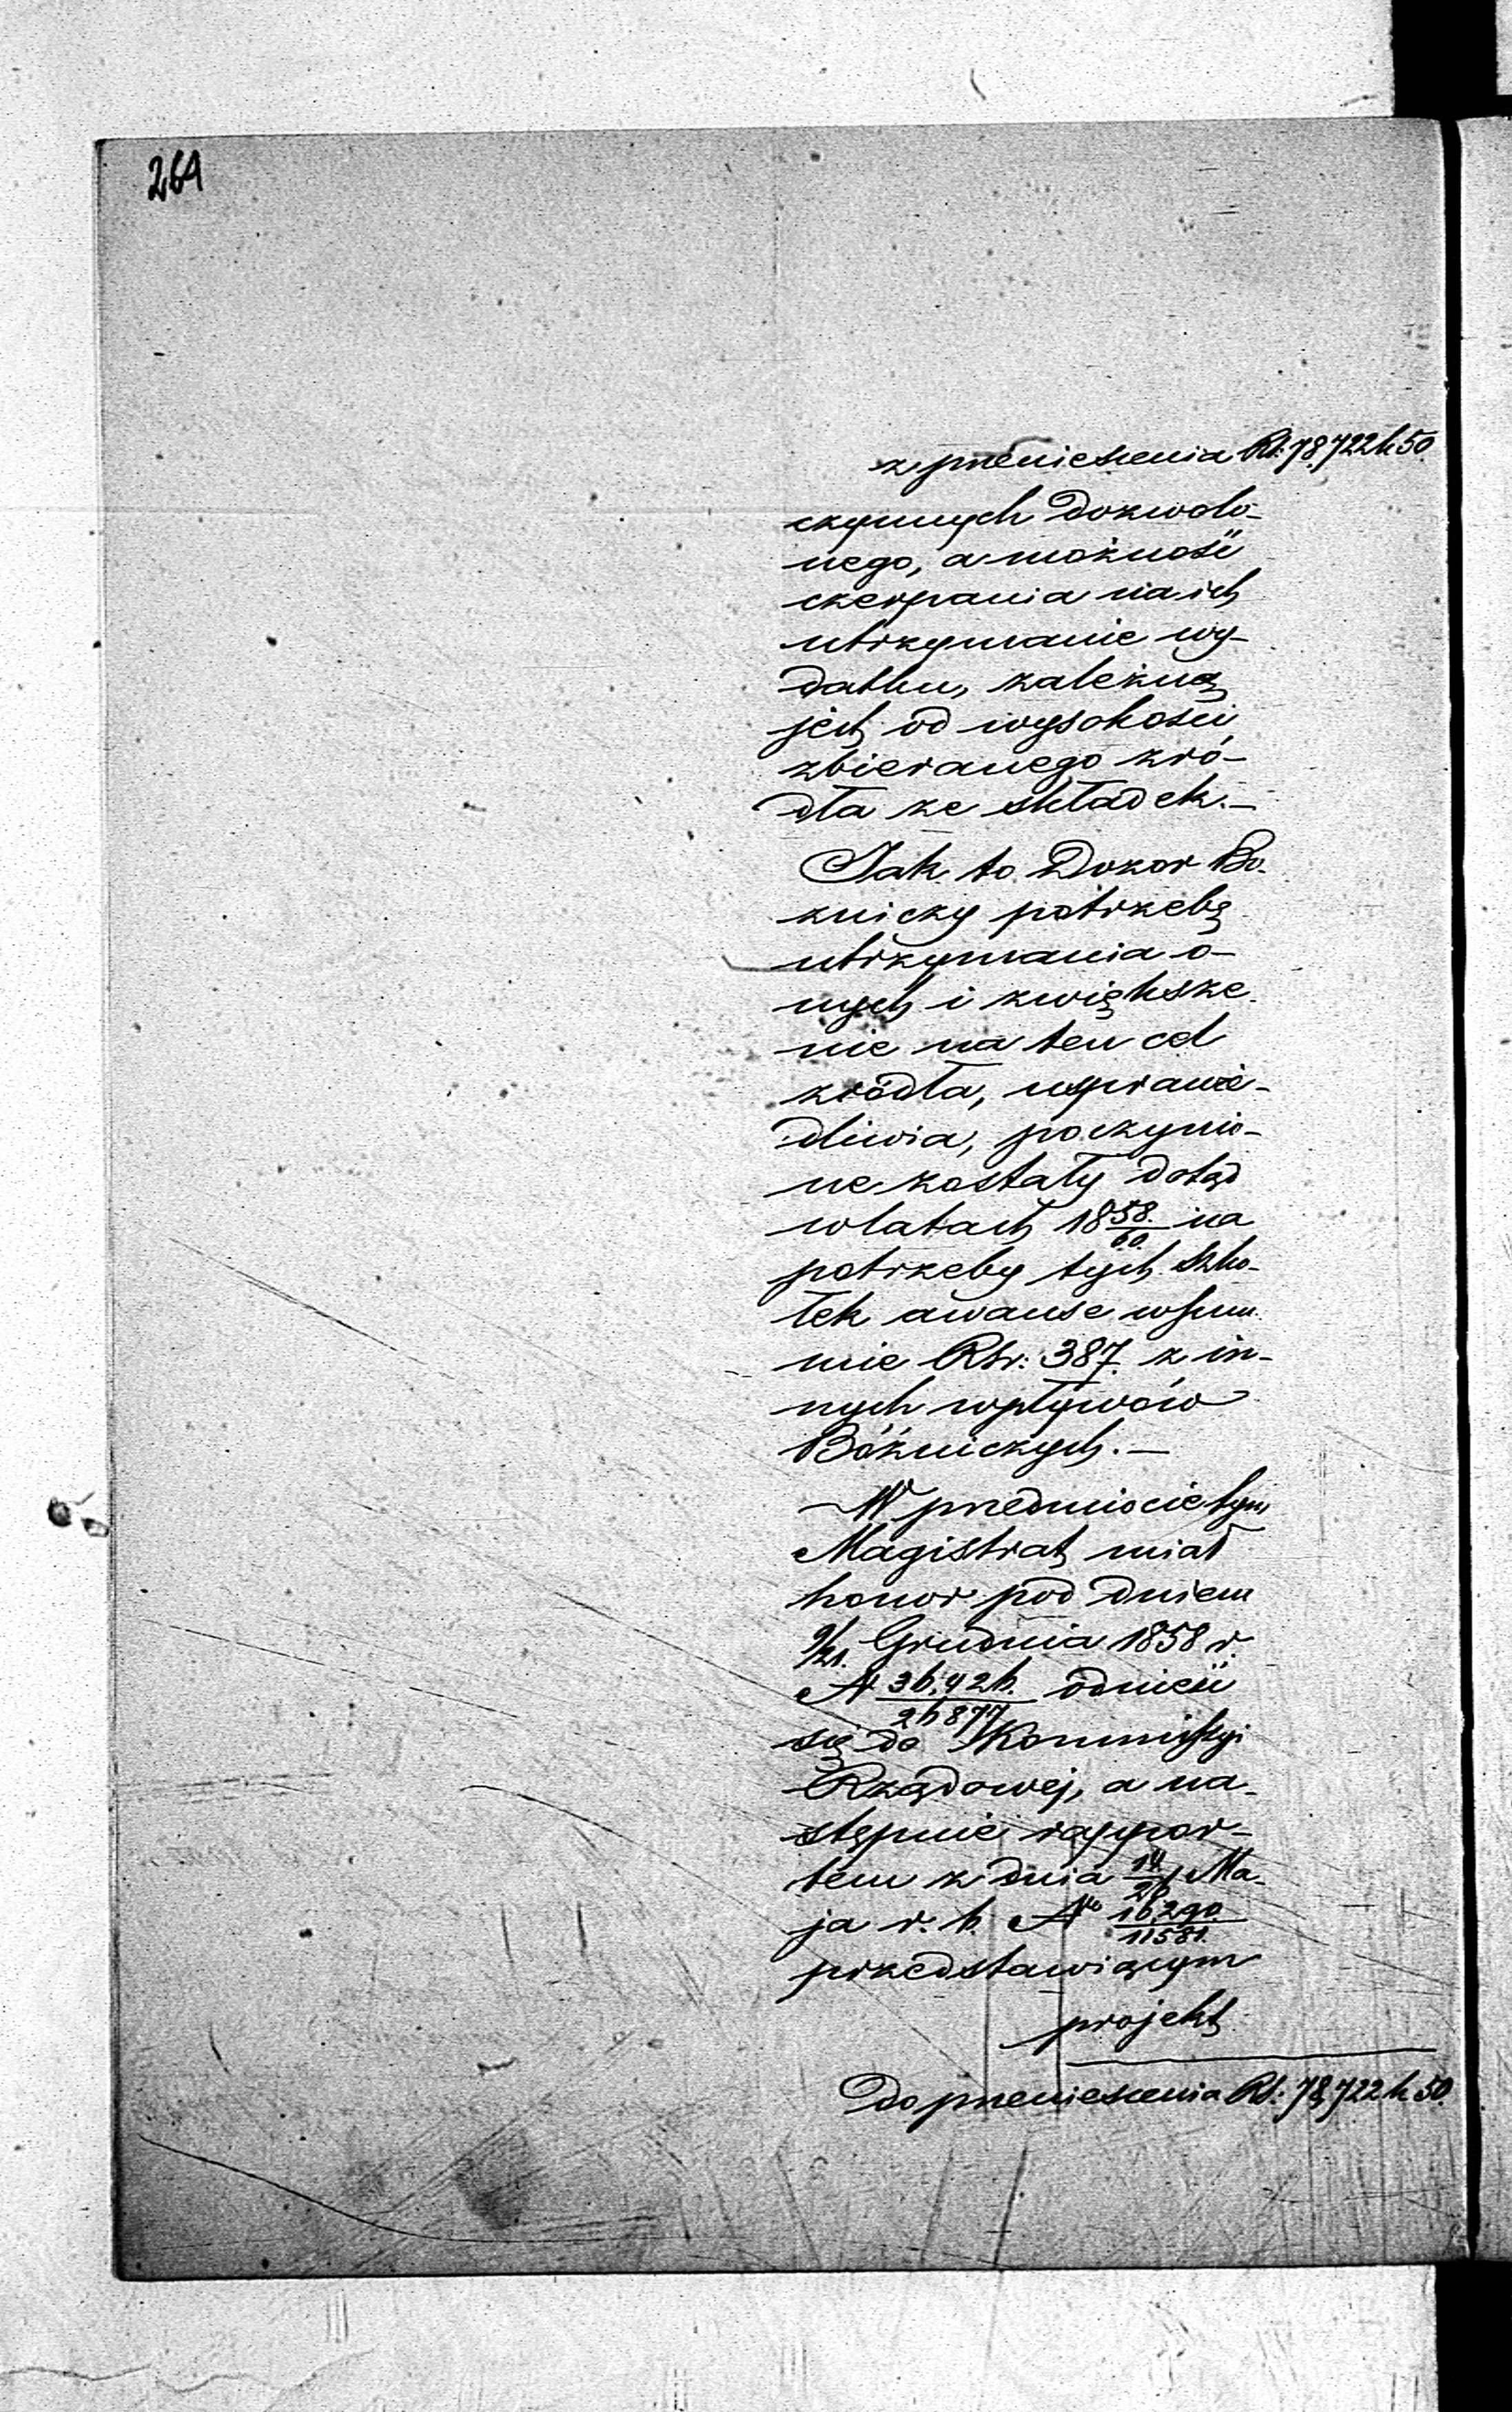 264
z przeniesienia Rs: 78,722 k 50
czynnych dozwolo-
nego, a możność
czerpania na ich
utrzymanie wy-
datku, zależną
jest od wysokości
zbieranego zró-
dła ze składek.—
Jak to Dozor Bo-
zniczy potrzebę
utrzymania o-
nych i zwiększe-
nie na ten cel
zródła, usprawie-
dliwia, poczynio-
ne zostały dotąd
w latach 1858/60 na
potrzeby tych szko-
łek awanse w sum-
mie Rsr: 387. z in-
nych wpływów
Bóżniczych.—
W przedmiocie tym
Magistrat miał
honor pod dniem
9/21. Grudnia 1858 r.
N 36,426/26877 odnieść
się do Kommissyi
Rządowej, a na-
stępnie rappor-
tem z dnia 14/26 Ma-
ja r. b. No 16,290/11581.
przedstawiającym
projekt
Do przeniesienia Rs: 78,722 k 50.